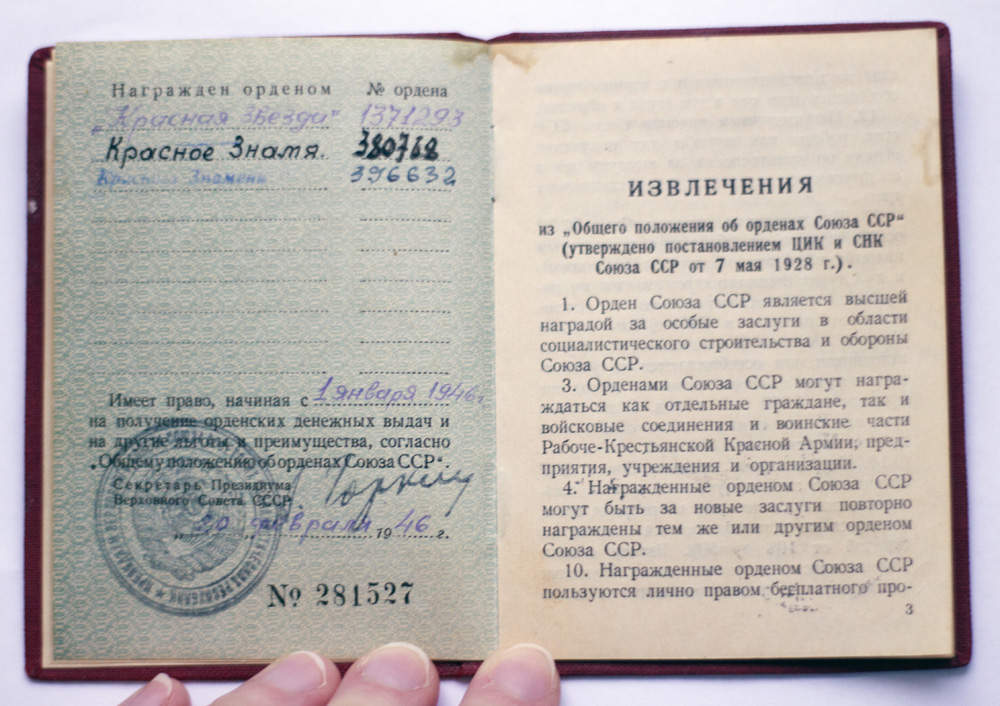 Награжден орденом № ордена
„Красная Звезда" 1371293
Красное Знамя. 380768
Красного Знамени 396632
Имеет право, начиная с 1 января 1946 г.
на получение орденских денежных выдач и
на другие льготы и преимущества, согласно
„Общему положению об орденах Союза ССР".
Секретарь Президиума
Верховного Совета СССР
„20" февраля 1946 г.
№ 281527
ИЗВЛЕЧЕНИЯ
из „Общего положения об орденах Союза ССР"
(утверждено постановлением ЦИК и СНК
Союза ССР от 7 мая 1928 г.).
1. Орден Союза ССР является высшей
наградой за особые заслуги в области
социалистического строительства и обороны
Союза ССР.
3. Орденами Союза ССР могут награ-
ждаться как отдельные граждане, так и
войсковые соединения и воинские части
Рабоче-Крестьянской Красной Армии, пред-
приятия, учреждения и организации.
4. Награжденные орденом Союза ССР
могут быть за новые заслуги повторно
награждены тем же или другим орденом
Союза ССР.
10. Награжденные орденом Союза ССР
пользуются лично правом бесплатного про-
3